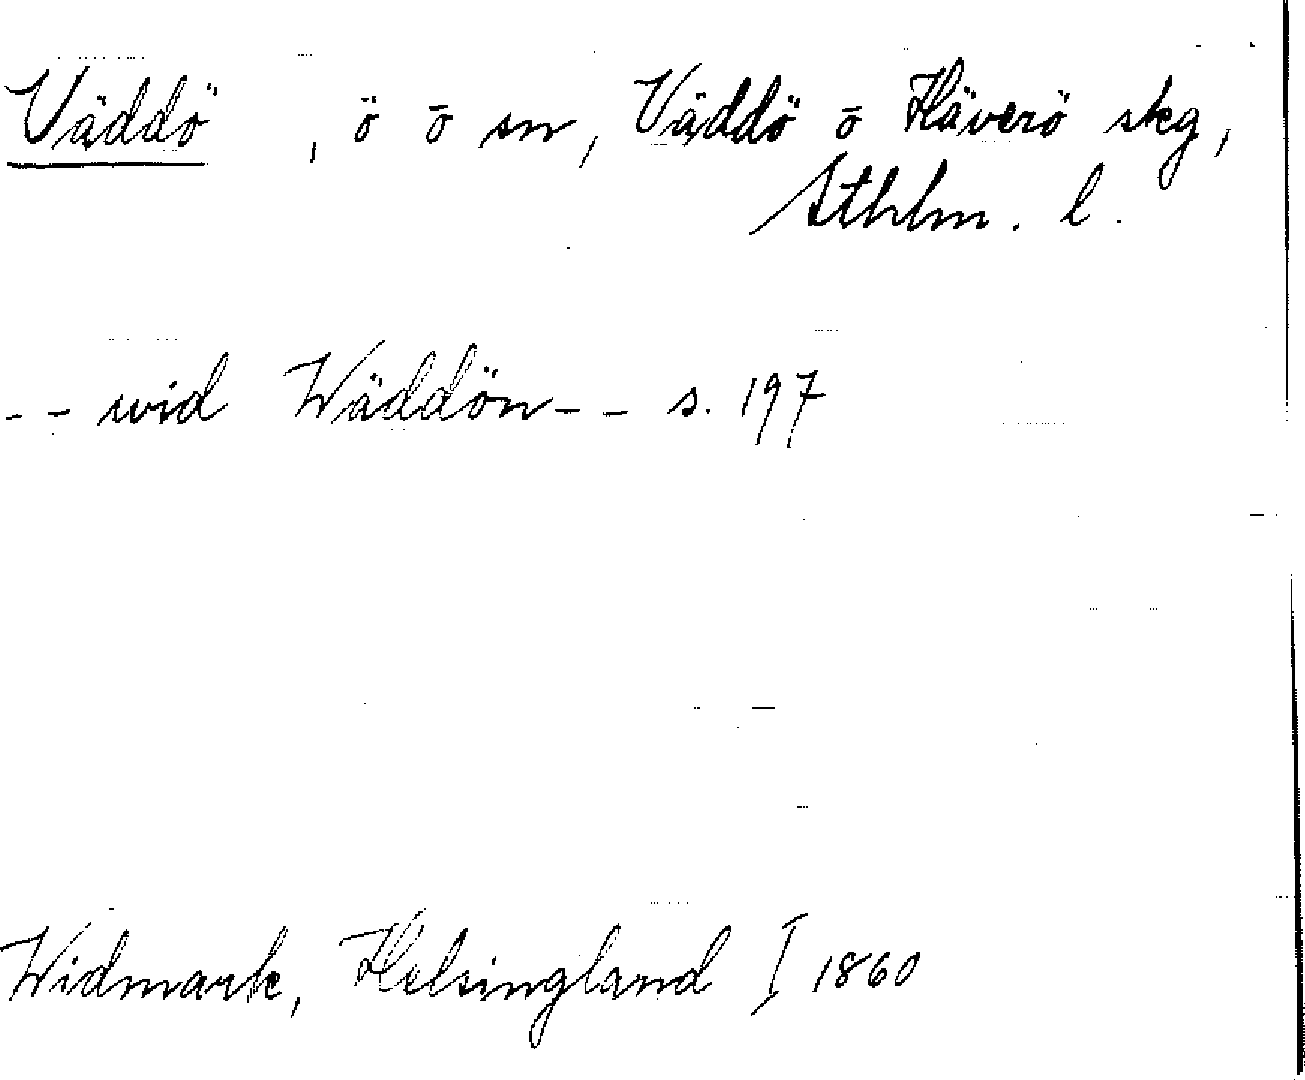 Väddö, ö o sn, Väddö o Häverö skg,
Sthlm. l.
-- wid Wäddön -- s. 197
Widmark, Helsingland I 1860